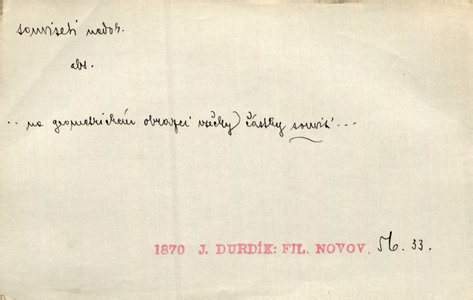 souviseti nedok.
abs.
.. na geometrickém obrazci všecky částky souvisí ...
1870 J. DURDÍK: FIL. NOVOV. 56. 33.